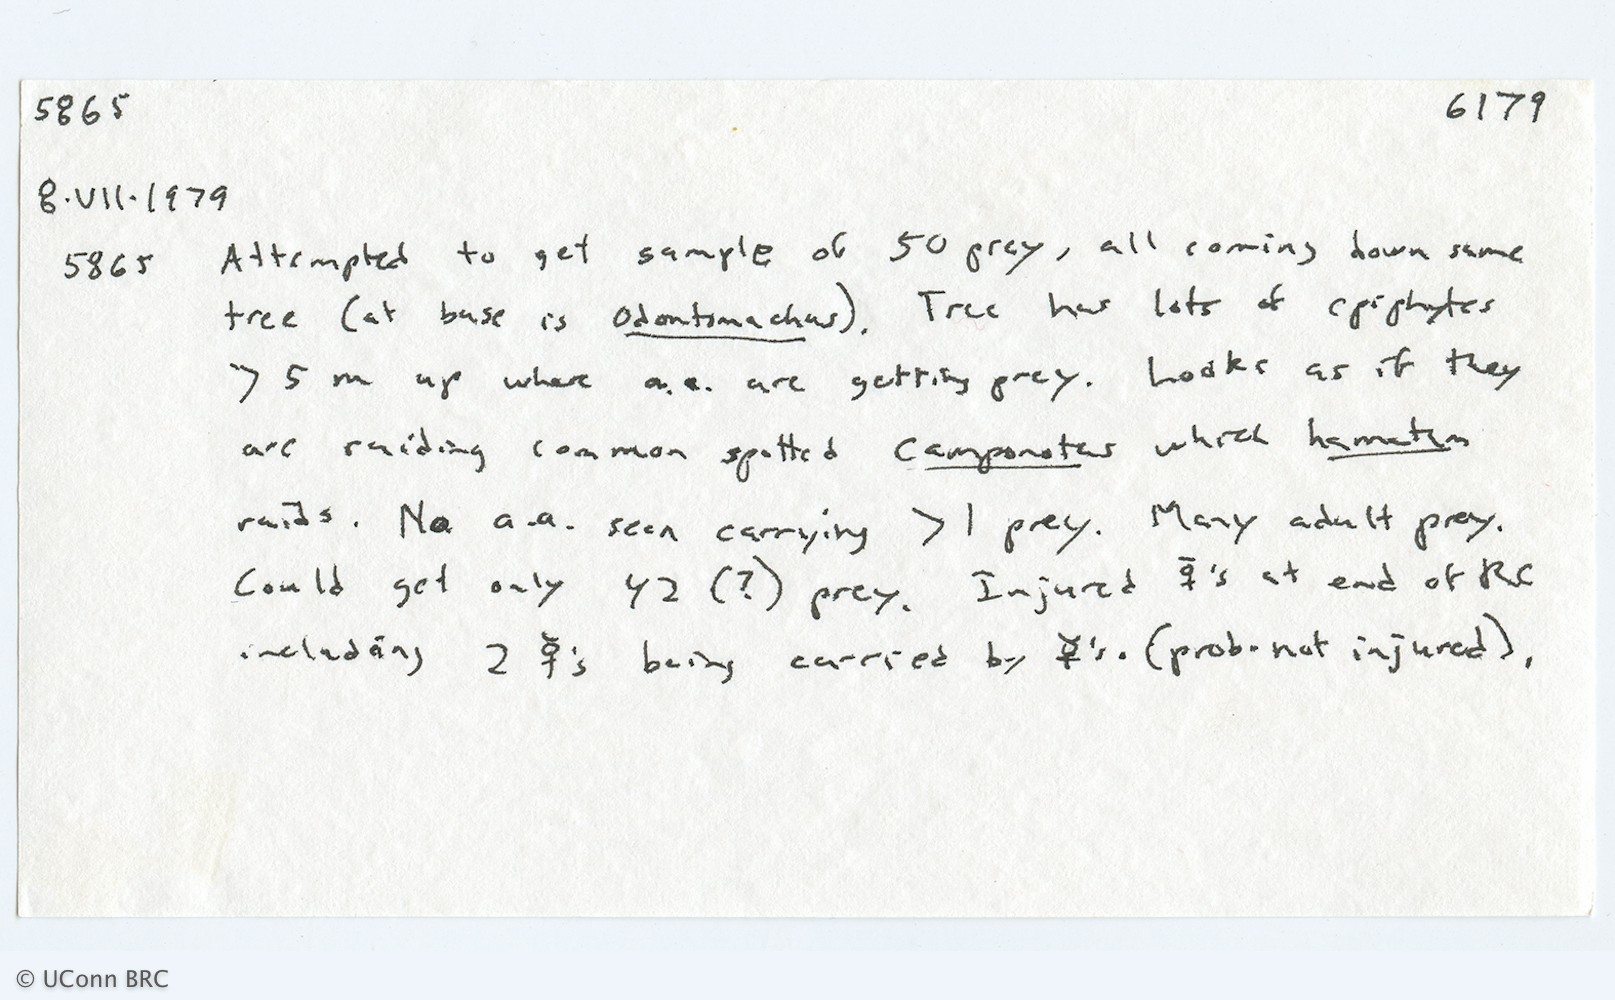 5865 6179
8.VII.1979
5865 Attempted to get sample of 50 prey, all coming down same
tree (at base is Odontomachus). Tree has lots of epiphytes
> 5 m up where a.a. are getting prey. Looks as if they
are raiding common spotted Camponotus which hamatum
raids. No a.a. seen carrying > 1 prey. Many adult prey.
Could get only 42 (?) prey. Injured ☿'s at end of RC
including 2 ☿'s being carried by ☿'s. (prob. not injured).
© UConn BRC